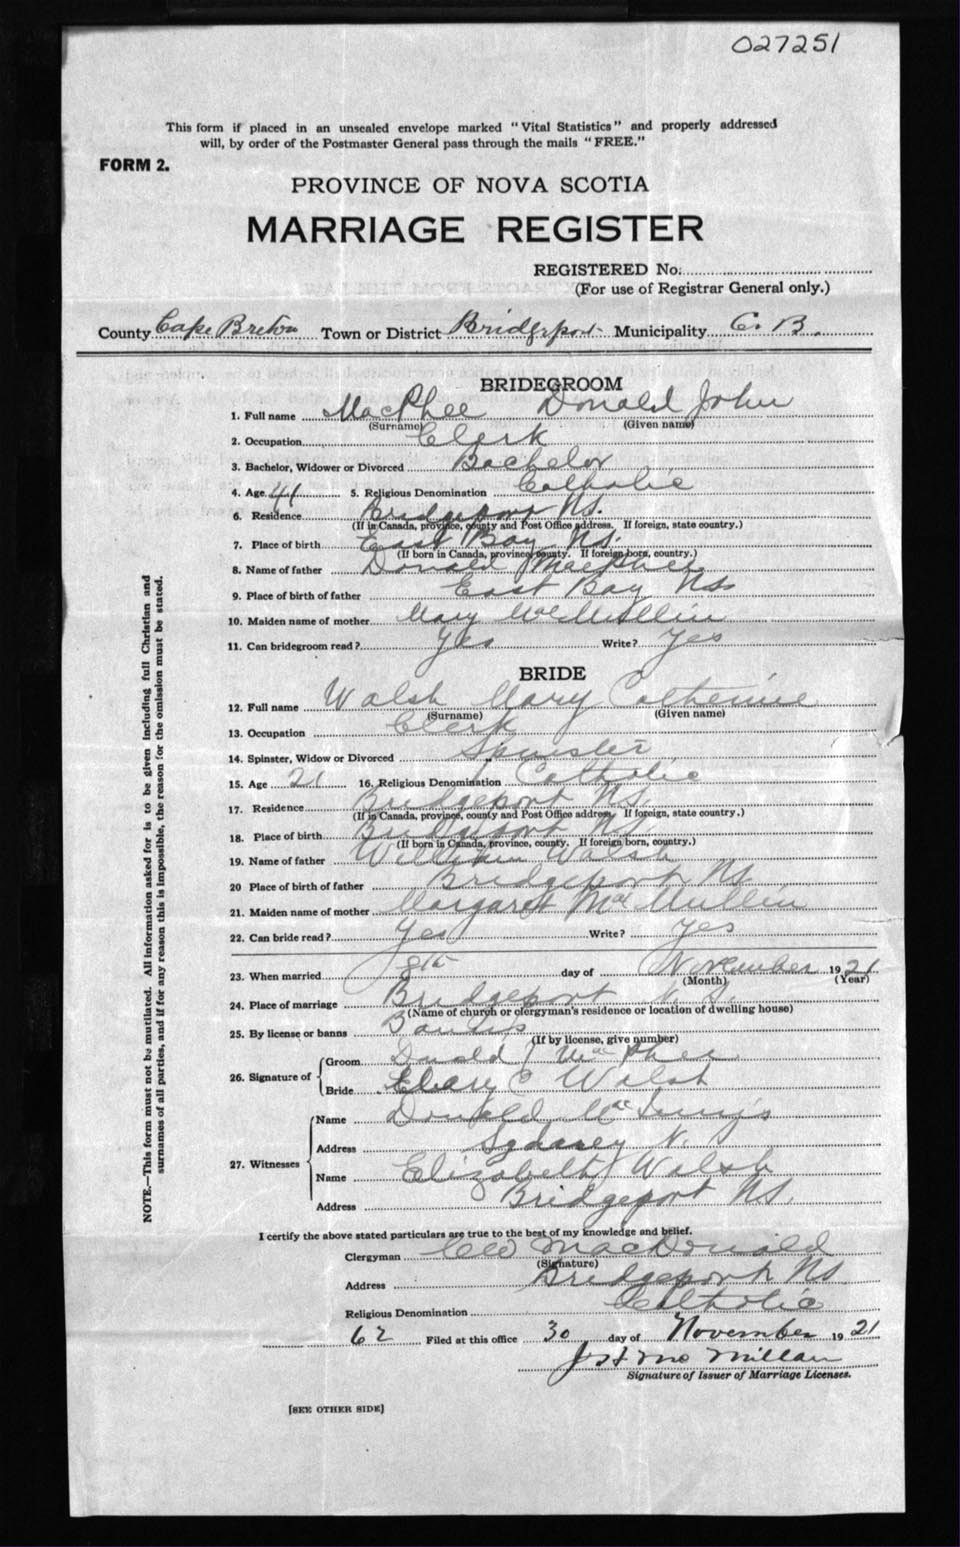 027251
This form if placed in an unsealed envelope marked "Vital Statistics" and properly addressed
will, by order of the Postmaster General pass through the mails "FREE."
FORM 2.
PROVINCE OF NOVA SCOTIA
MARRIAGE REGISTER
REGISTERED No.
(For use of Registrar General only.)
County Cape Breton Town or District Bridgeport Municipality C. B.
BRIDEGROOM
1. Full name MacPhee Donald John
(Surname) (Given name)
2. Occupation Clerk
3. Bachelor, Widower or Divorced Bachelor
4. Age 41 5. Religious Denomination Catholic
6. Residence Bridgeport NS.
(If in Canada, province, county and Post Office address. If foreign, state country.)
7. Place of birth East Bay NS.
(If born in Canada, province county. If foreign born, country.)
8. Name of father Donald MacPhee
9. Place of birth of father East Bay NS
10. Maiden name of mother Mary McMullin
11. Can bridegroom read? Yes Write? Yes
BRIDE
12. Full name Walsh Mary Catherine
(Surname) (Given name)
13. Occupation Clerk
14. Spinster, Widow or Divorced Spinster
15. Age 21 16. Religious Denomination Catholic
17. Residence Bridgeport NS.
(If in Canada, province, county and Post Office address. If foreign, state country.)
18. Place of birth Bridgeport NS
(If born in Canada, province, county. If foreign born, country.)
19. Name of father William Walsh
20 Place of birth of father Bridgeport NS
21. Maiden name of mother Margaret MacMullin
22. Can bride read? Yes Write? Yes
23. When married 8th day of November 1921
(Month) (Year)
24. Place of marriage Bridgeport N.S.
(Name of church or clergyman's residence or location of dwelling house)
25. By license or banns Banns
(If by license, give number)
26. Signature of Groom Donald J MacPhee
Bride Mary C Walsh
27. Witnesses
Name Donald McInnis
Address Sydney N.
Name Elizabeth Walsh
Address Bridgeport NS.
I certify the above stated particulars are true to the best of my knowledge and belief.
Clergyman MacDonald
(Signature)
Address Bridgeport NS.
Religious Denomination Catholic
62 Filed at this office 30 day of November 1921
McMillan
Signature of Issuer of Marriage Licenses.
[SEE OTHER SIDE]
NOTE.—This form must not be mutilated. All information asked for is to be given including full Christian and
surnames of all parties, and if for any reason this is impossible, the reason for the omission must be stated.